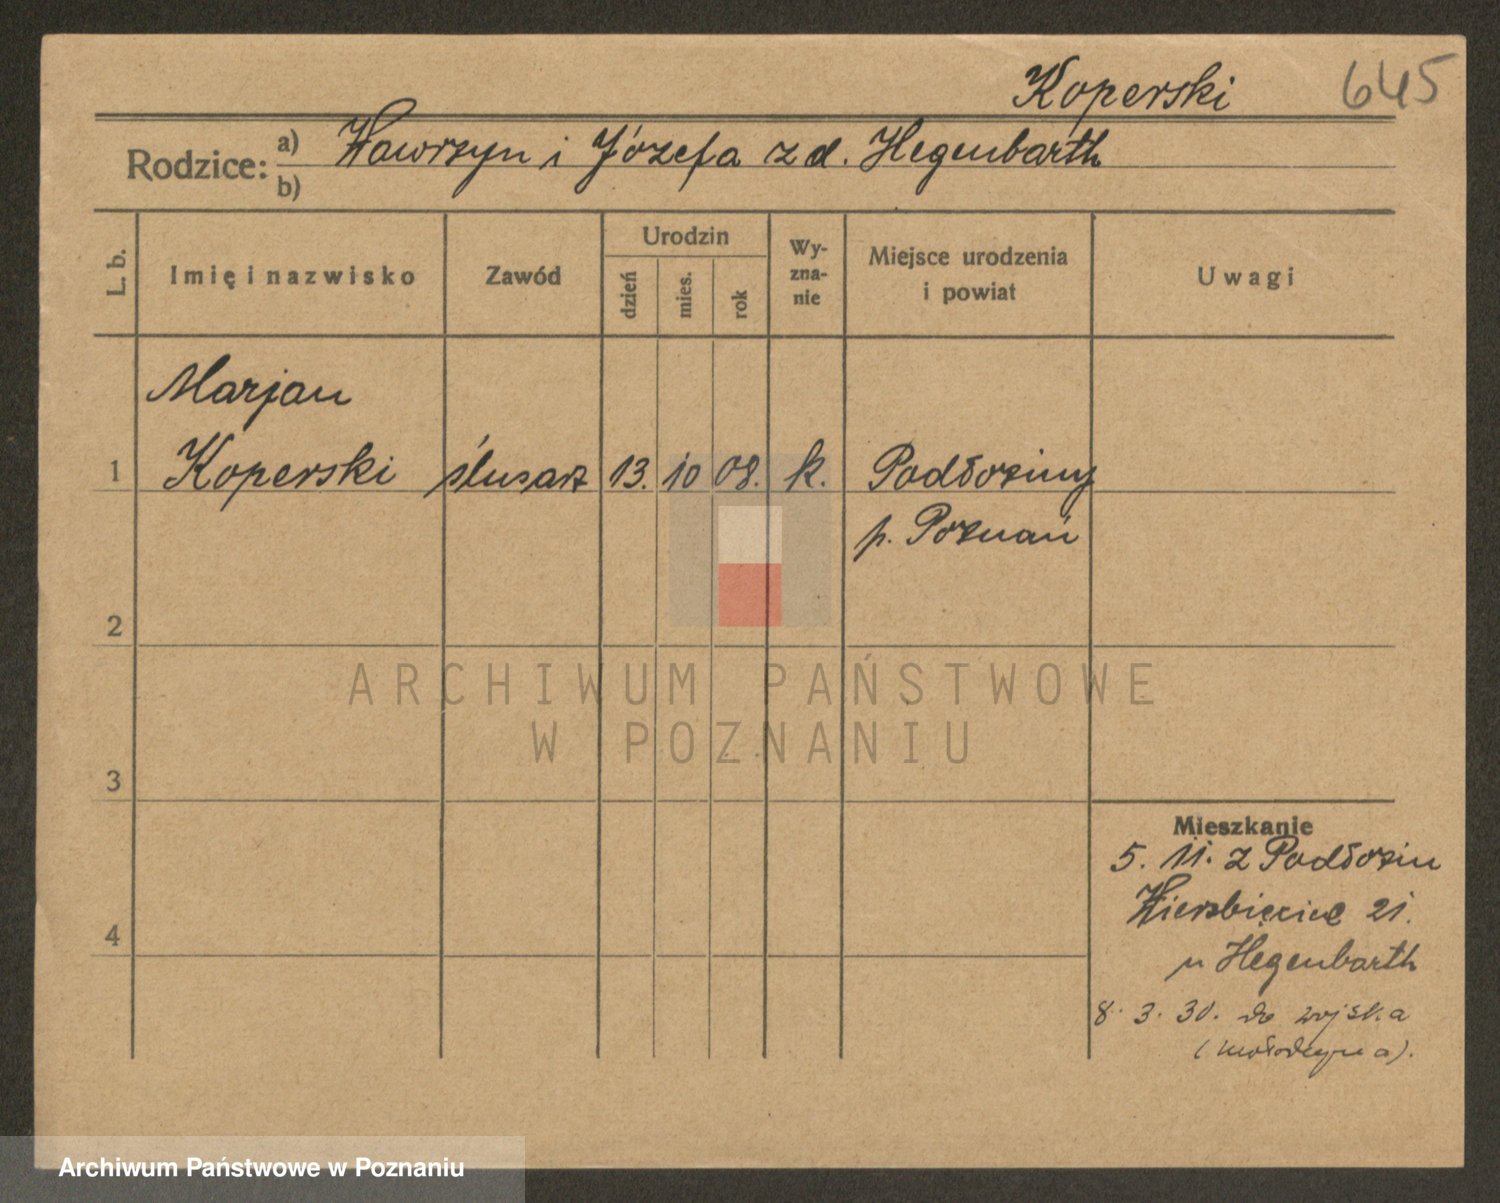 Koperski 645
Rodzice: a) Wawrzyn i Józefa z d. Hegenbarth
b)
L. b. Imię i nazwisko Zawód Urodzin dzień mies. rok Wyznanie Miejsce urodzenia i powiat Uwagi
Marjan
1 Koperski ślusarz 13. 10 08. k. Podłoziny
p. Poznań
2
ARCHIWUM PAŃSTWOWE
W POZNANIU
3
Mieszkanie
5. 11. z Podłozin
Wierzbięcice 21.
4
u Hegenbarth
8. 3. 30. do wojska
(Mołodeczna).
Archiwum Państwowe w Poznaniu